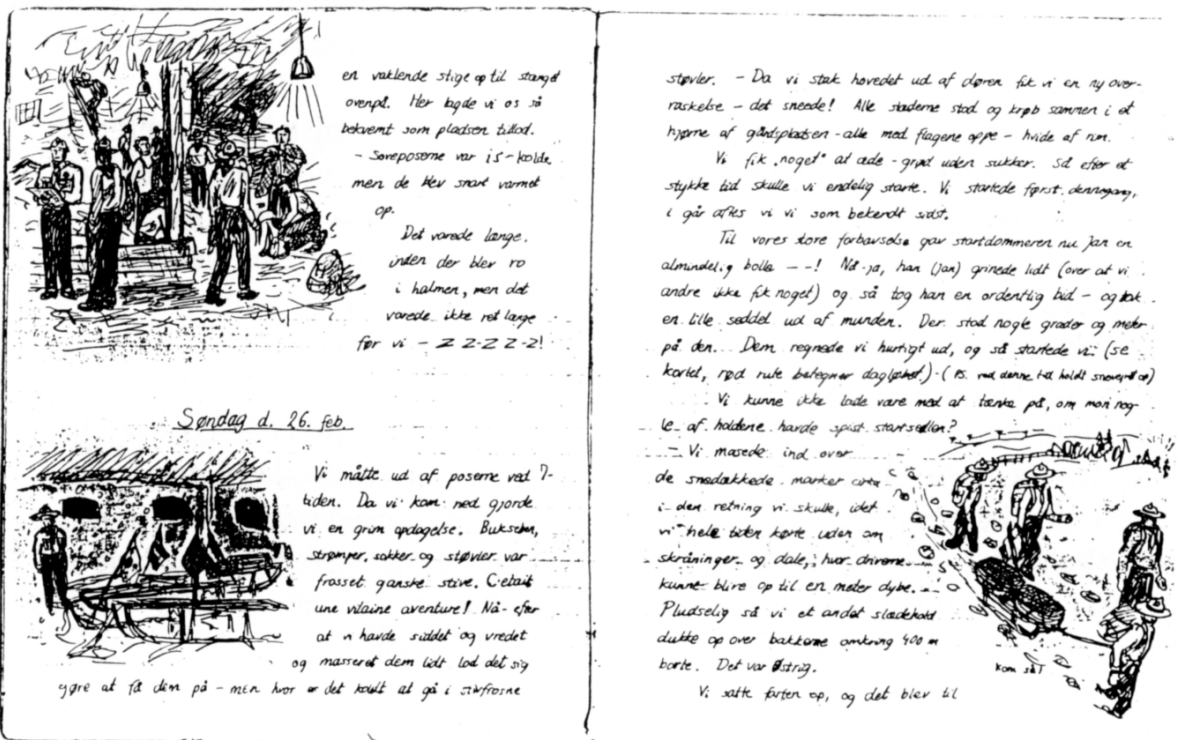 en vaklende stige op til stænget
ovenpå. Her lagde vi os så
bekvemt som pladsen tillod.
- Soveposerne var is-kolde
men de blev snart varmet
op.
Det varede længe.
inden der blev ro
i halmen, men det
varede ikke ret længe
før vi - Z Z-Z Z Z-Z!
Søndag d. 26. feb.
Vi måtte ud af poserne ved 7-
tiden. Da vi kom ned gjorde
vi en grim opdagelse. Bukseben,
strømper, sokker og støvler var
frosset ganske stive. C'etait
une vilaine aventure! Nå - efter
at vi havde siddet og vredet
og masseret dem lidt lod det sig
gøre at få dem på - men hvor er det koldt at gå i stivfrosne
støvler. - Da vi stak hovedet ud af døren fik vi en ny over-
raskelse - det sneede! Alle slæderne stod og krøb sammen i et
hjørne af gårdspladsen - alle med flagene oppe - hvide af rim.
Vi fik "noget" at æde - grød uden sukker. Så efter et
stykke tid skulle vi endelig starte. Vi startede først denne gang,
i går aftes vi vi som bekendt sidst.
Til vores store forbavselse gav startdommeren nu Jan en
almindelig bolle - -! Nå-ja, han (Jan) grinede lidt (over at vi
andre ikke fik noget) og så tog han en ordentlig bid - og tak
en lille seddel ud af munden. Der stod nogle grader og meter
på den. Dem regnede vi hurtigt ud, og så startede vi. (se
kortet, rød rute betegner dagløbet.) (PS. ved denne tid holdt snevejret op)
Vi kunne ikke lade være med at tænke på, om mon nog-
le af holdene havde spist startsedlen?
- Vi masede ind over
de snedækkede marker cirka
i den retning vi skulle, idet
vi hele tiden kørte uden om
skråninger og dale, hvor driverne
kunne blive op til en meter dybe.
Pludselig så vi et andet slædehold
dukke op over bakkerne omkring 400 m
borte. Det var Østrig.
Kom så!
Vi satte farten op, og det blev til